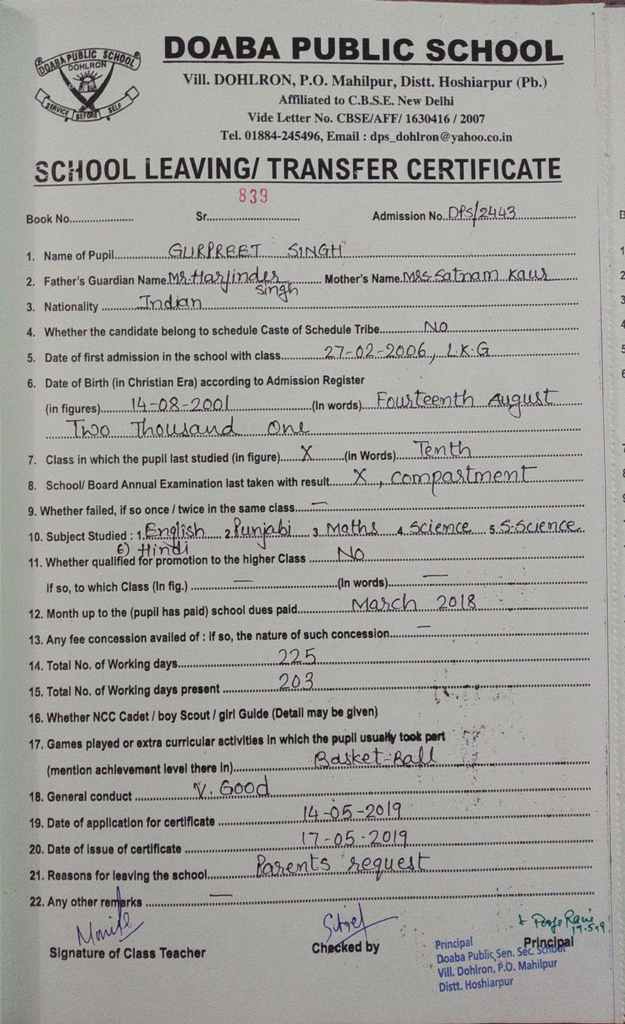 DOABA PUBLIC SCHOOL
DOHLRON
SERVICE BEFORE SELF
DOABA PUBLIC SCHOOL
Vill. DOHLRON, P.O. Mahilpur, Distt. Hoshiarpur (Pb.)
Affiliated to C.B.S.E. New Delhi
Vide Letter No. CBSE/AFF/ 1630416 / 2007
Tel. 01884-245496, Email : dps_dohlron@yahoo.co.in
SCHOOL LEAVING/ TRANSFER CERTIFICATE
Book No. Sr. 839 Admission No. DPS/2443
1. Name of Pupil GURPREET SINGH
2. Father's Guardian Name Mr. Harjinder Singh Mother's Name Mrs. Satnam Kaur
3. Nationality Indian
4. Whether the candidate belong to schedule Caste of Schedule Tribe NO
5. Date of first admission in the school with class 27-02-2006, L.K.G
6. Date of Birth (in Christian Era) according to Admission Register
(in figures) 14-08-2001 (In words) Fourteenth August
Two Thousand One
7. Class in which the pupil last studied (in figure) X (in Words) Tenth
8. School/ Board Annual Examination last taken with result X, compartment
9. Whether failed, if so once / twice in the same class —
10. Subject Studied : 1. English 2. Punjabi 3. Maths 4. Science 5. S.Science
6) Hindi
11. Whether qualified for promotion to the higher Class NO
If so, to which Class (In fig.) — (In words) —
12. Month up to the (pupil has paid) school dues paid March 2018
13. Any fee concession availed of : If so, the nature of such concession —
14. Total No. of Working days 225
15. Total No. of Working days present 203
16. Whether NCC Cadet / boy Scout / girl Guide (Detail may be given)
17. Games played or extra curricular activities in which the pupil usually took part
(mention achievement level there in) Basket-Ball
18. General conduct V. Good
19. Date of application for certificate 14-05-2019
20. Date of issue of certificate 17-05-2019
21. Reasons for leaving the school Parents request
22. Any other remarks —
Signature of Class Teacher Checked by Principal
17-5-19
Principal
Doaba Public Sen. Sec. School
Vill. Dohlron, P.O. Mahilpur
Distt. Hoshiarpur